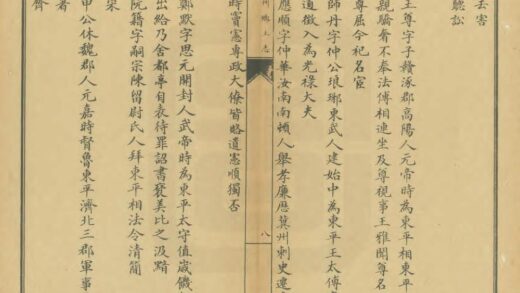 去害
聽訟
王尊字子贛涿郡高陽人元帝時為東平相東平
親驕奢不奉法傅相連坐及尊視事王雅聞尊名
尊屈今祀名宦
師丹字仲公琅琊東武人建始中為東平王太傅
道徵入為光祿大夫
應順字仲華汝南南頓人舉孝廉歷冀州刺史遷
州鄉土志
八
時竇憲專政大僚皆賂遺憲順獨否
鄭默字思元開封人武帝時為東平太守值歲饑
出給乃舍都亭自表待罪詔書褒美比之汲黯
阮籍字嗣宗陳留尉氏人拜東平相法令清簡
宋
申公休魏郡人元嘉時督魯東平濟北三郡軍事
著
齊